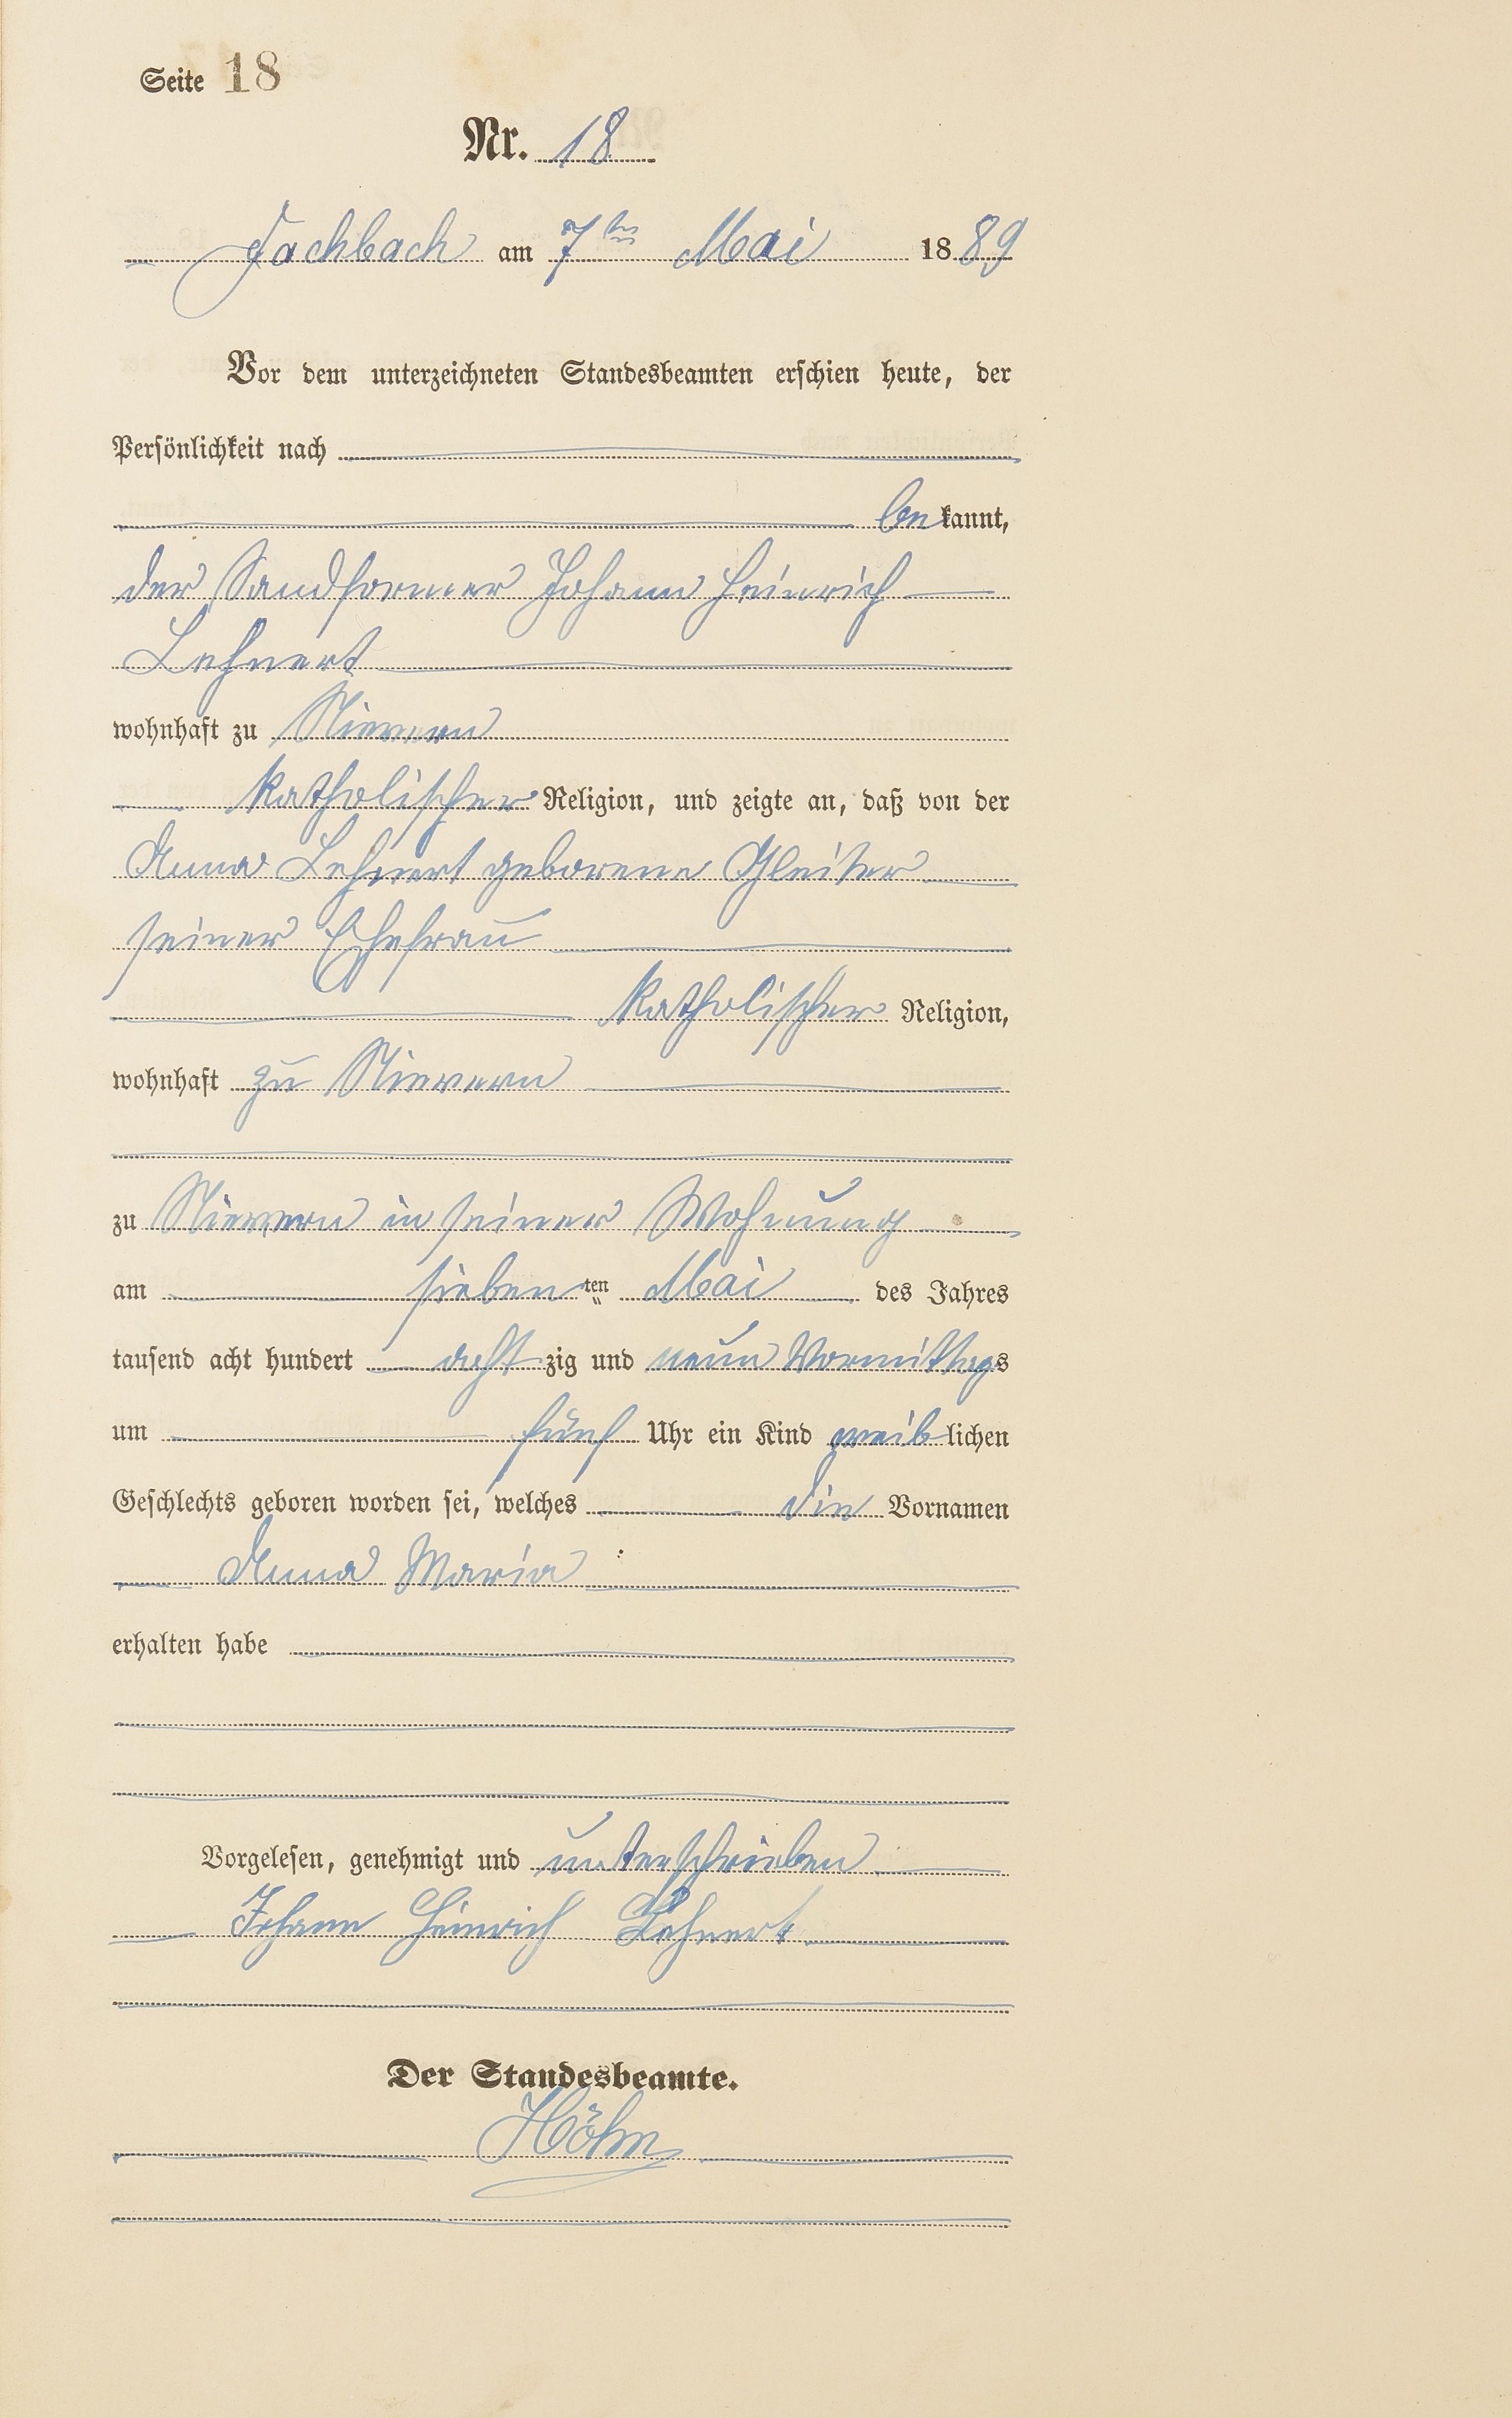 Seite 18
Nr. 18
Fachbach am 7ten Mai 1889
Vor dem unterzeichneten Standesbeamten erschien heute, der
Persönlichkeit nach
bekannt,
der Sandformer Johann Heinrich
Lehnert
wohnhaft zu Nievern
katholischer Religion, und zeigte an, daß von der
Anna Lehnert geborene Gleiter
seiner Ehefrau
katholischer Religion,
wohnhaft zu Nievern
zu Nievern in seiner Wohnung
am siebenten Mai des Jahres
tausend acht hundert achtzig und neun Vormittags
um fünf Uhr ein Kind weiblichen
Geschlechts geboren worden sei, welches die Vornamen
Anna Maria
erhalten habe
Vorgelesen, genehmigt und unterschrieben
Johann Heinrich Lehnert
Der Standesbeamte.
Höhn